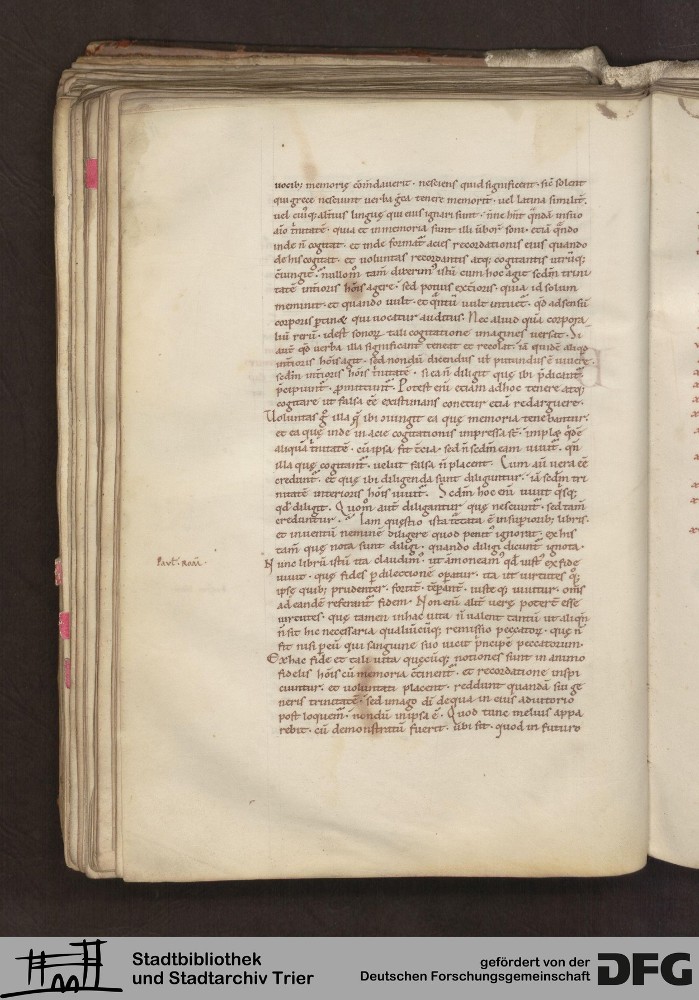 uocib; memorię cōmdauerit · nesciens quid significent · sic̄ solent
qui grece nesciunt uerba gͣca tenere memorit̄ · uel latina similit̄ ·
uel cuiꝰqꝫ alteriꝰ linguę qui eius ignari sunt · nōne hn̄t quādā in suo
aīo t̄nitatē · quia et in memoria sunt illi ūborꝫ soni · etiā quādo
inde n̄ cogitat · et inde format̄ acies recordationis eius quando
de his cogitat · et uoluntas recordantis atqꝫ cogitantis utrūqꝫ
cōiungit · nullo m̊ tam̄ dixerimꝰ istū cum hoc agit sedm̄ trini
tatē int̄ioris hōīs agere · sed potius ext̄ioris · quia id solum
meminit · et quando uult · et quātū uult intuet̄ · qd̄ ad sensū
corporis ꝑtinet qui uocatur auditus · Nec aliud quā corpora
liū rerū · idest sonorꝫ tali cogitatione imagines uersat · Si
aut̄ qd̄ uerba illa significant teneat et recolat · iā quidē aliqd
int̄ioris hōīs agit · sed nondū dicendus ut̄ putandus ē uiuere
sedm̄ int̄ioris hōīs t̄nitatē · si ea n̄ diligit quę ibi p̄dicant̄ ·
p̄cipiunt̄ · ꝓmittunt̄ · Potest enī etiam ad hoc tenere atqꝫ
cogitare ut falsa ēe existimans conetur etiā redarguere ·
Uoluntas gͦ illa quę ibi ɔiungit ea quę memoria tenebantur ·
et ea quę inde in acie cogitationis impressa sт̄ · implet qdē
aliquā t̄nitatē · cū ipsa sit t̄cia · sed n̄ sedm̄ eam uiuit̄ · qn̄
illa quę cogitant̄ · uelut falsa n̄ placent · Cum aūt uera ēe
credunt̄ · et quę ibi diligenda sunt diliguntur · iā sedm̄ tri
nitatē interioris hōīs uiuit̄ · Sedm̄ hoc enī uiuit qͥsqꝫ
qd̄ diligit · Quom̊ autē diligantur quę nesciunt̄ · sed tam̄
creduntur · Iam quęstio ista t̄ctata ē in supiorib; libris ·
et inuentū neminē diligere quod penitꝰ ignorat · ex his
tam̄ quę nota sunt diligi · quando diligi dicunt̄ ignota ·
Nunc librū istū ita claudimꝰ · ut amoneamꝰ qd̄ iustꝰ ex fide
uiuit · quę fides ꝑ dilectionē oꝑatur · ita ut uirtutes qͦqꝫ
ipsę quib; prudenter · fortit̄ · tēperāt̄ · iusteqꝫ uiuitur · om̄s
ad eandē referant̄ fidem · Non enī alit̄ uerę potert̄ esse
uirtutes · quę tamen in hac uita n̄ ualent tantū ut aliqn̄
n̄ sit hic necessaria qualiūcūqꝫ remissio peccatorꝫ · quę n̄
fit nisi ꝑ eū qui sanguine suo uicit p̄ncipē peccatorum ·
Ex hac fide et tali uita quęcūqꝫ notiones sunt in animo
fidelis hōīs cū memoria cōtinent̄ · et recordatione inspi
ciuntur · et uoluntati placent · reddunt quandā sui ge
neris trinitatē · sed imago dī de qua in eius adiutorio
post loquem̄ · nondū in ipsa ē · Quod tunc melius appa
rebit · cū demonstratū fuerit · ubi sit · quod in futuro
Paul̄ · Rom̄ ·
Stadtbibliothek
und Stadtarchiv Trier
gefördert von der
Deutschen Forschungsgemeinschaft
DFG